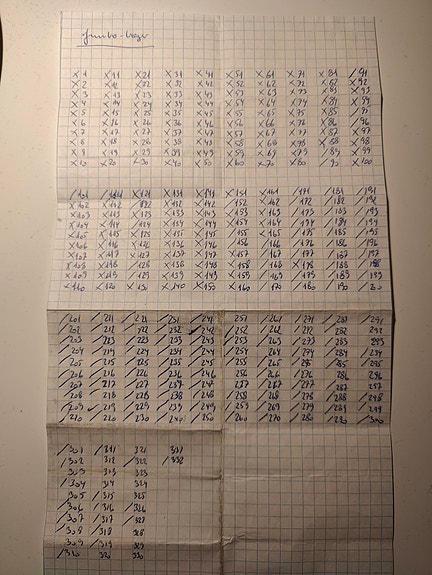 x1 x11 x21 x31 x41 x51 x61 x71 x81 /91
x2 x12 x22 x32 x42 x52 x62 x72 x82 x92
x3 x13 x23 x33 x43 x53 x63 x73 x83 x93
x4 x14 x24 x34 x44 x54 x64 x74 x84 x94
x5 x15 x25 x35 x45 x55 x65 x75 x85 x95
x6 x16 x26 x36 x46 x56 x66 x76 x86 x96
x7 x17 x27 x37 x47 x57 x67 x77 x87 x97
x8 x18 x28 x38 x48 x58 x68 x78 x88 x98
x9 x19 x29 x39 x49 x59 x69 x79 x89 x99
x10 x20 x30 x40 x50 x60 x70 x80 /90 x100
/101 /111 x121 x131 x141 x151 x161 /171 /181 /191
x102 x112 x122 x132 x142 x152 x162 /172 /182 /192
x103 x113 x123 x133 x143 x153 x163 /173 /183 /193
x104 x114 x124 x134 x144 x154 /164 /174 /184 /194
x105 x115 x125 x135 x145 x155 /165 /175 /185 /195
x106 x116 x126 x136 x146 x156 /166 /176 /186 /196
x107 x117 x127 x137 x147 x157 /167 /177 /187 /197
x108 x118 x128 x138 x148 x158 /168 /178 /188 /198
x109 x119 x129 x139 x149 x159 /169 /179 /189 /199
x110 x120 x130 x140 x150 x160 /170 /180 /190 /200
/201 /211 /221 /231 /241 /251 /261 /271 /281 /291
/202 /212 /222 /232 /242 /252 /262 /272 /282 /292
/203 /213 /223 /233 /243 /253 /263 /273 /283 /293
/204 /214 /224 /234 /244 /254 /264 /274 /284 /294
/205 /215 /225 /235 /245 /255 /265 /275 /285 /295
/206 /216 /226 /236 /246 /256 /266 /276 /286 /296
/207 /217 /227 /237 /247 /257 /267 /277 /287 /297
/208 /218 /228 /238 /248 /258 /268 /278 /288 /298
/209 /219 /229 /239 /249 /259 /269 /279 /289 /299
/210 /220 /230 /240 /250 /260 /270 /280 /290 /300
/301 /311 321 /331
/302 312 /322 /332
303 313 /323
/304 314 324
/305 /315 325
/306 /316 /326
/307 /317 /327
/308 /318 328
/309 /319 329
/310 320 330